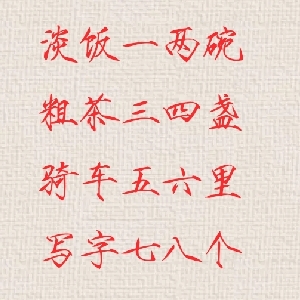 淡饭一两碗
粗茶三四盏
骑车五六里
写字七八个